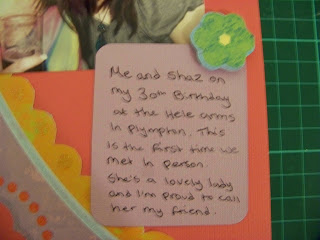 Me and Shaz on
my 30th Birthday
at the Hele arms
in Plympton. This
is the first time we
met in person.
She's a lovely lady
and I'm proud to call
her my friend.